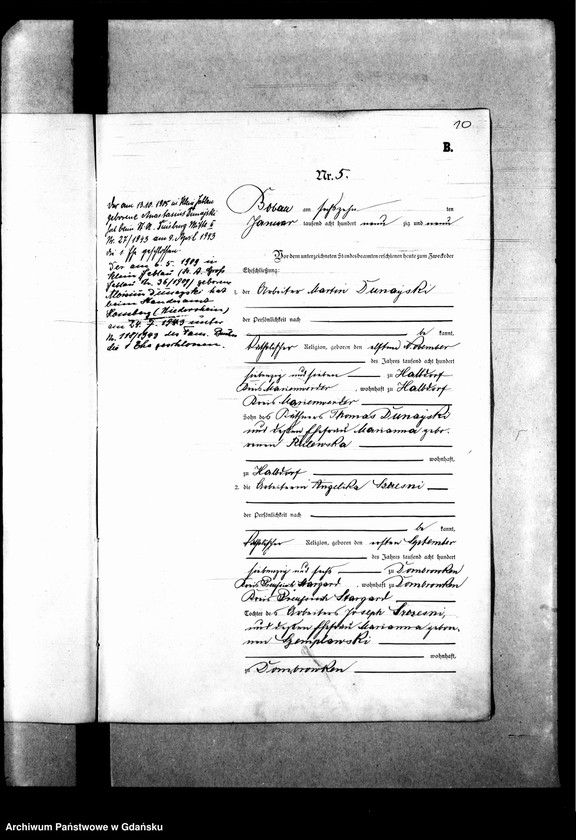 10
B.
Nr. 5.
Bobau am sechszehn ten
Januar tausend acht hundert neun zig und neun
Vor dem unterzeichneten Standesbeamten erschienen heute zum Zwecke der
Eheschließung:
1. der Arbeiter Martin Dunajski
der Persönlichkeit nach
be kannt,
katholischer Religion, geboren den elften November
des Jahres tausend acht hundert
siebenzig und sieben zu Halbdorf
Kreis Marienwerder, wohnhaft zu Halbdorf
Kreis Marienwerder
Sohn des Käthners Thomas Dunajski
und dessen Ehefrau Marianna gebo-
renen
wohnhaft,
zu Halbdorf
2. die Arbeiterin Angelika Szresni
der Persönlichkeit nach
be kannt,
katholischer Religion, geboren den ersten September
des Jahres tausend acht hundert
siebenzig und sechs zu Dombrowken
Kreis Preußisch Stargard, wohnhaft zu Dombrowken
Kreis Preußisch Stargard
Tochter des Arbeiters Joseph Szresni,
und dessen Ehefrau Marianna gebore-
nen
wohnhaft,
zu Dombrowken
Der am 13.10. 1905 in Klein Jablau
geborene Anastasius Dunajski
hat beim St. A. Duisburg Mitte
Nr. 27/1943 am 9. April 1943
die 1. Ehe geschlossen.
Der am 6.5. 1909 in
Klein Jablau (St. A. Groß
Jablau Nr. 36/1909) geborene
Aloisius Dunajski hat
beim Standesamt
Homberg (Niederrhein)
am 24. 7. 1943 unter
Nr. 118/1943 des Fam. Buches
die 1 Ehe geschlossen.
Archiwum Państwowe w Gdańsku